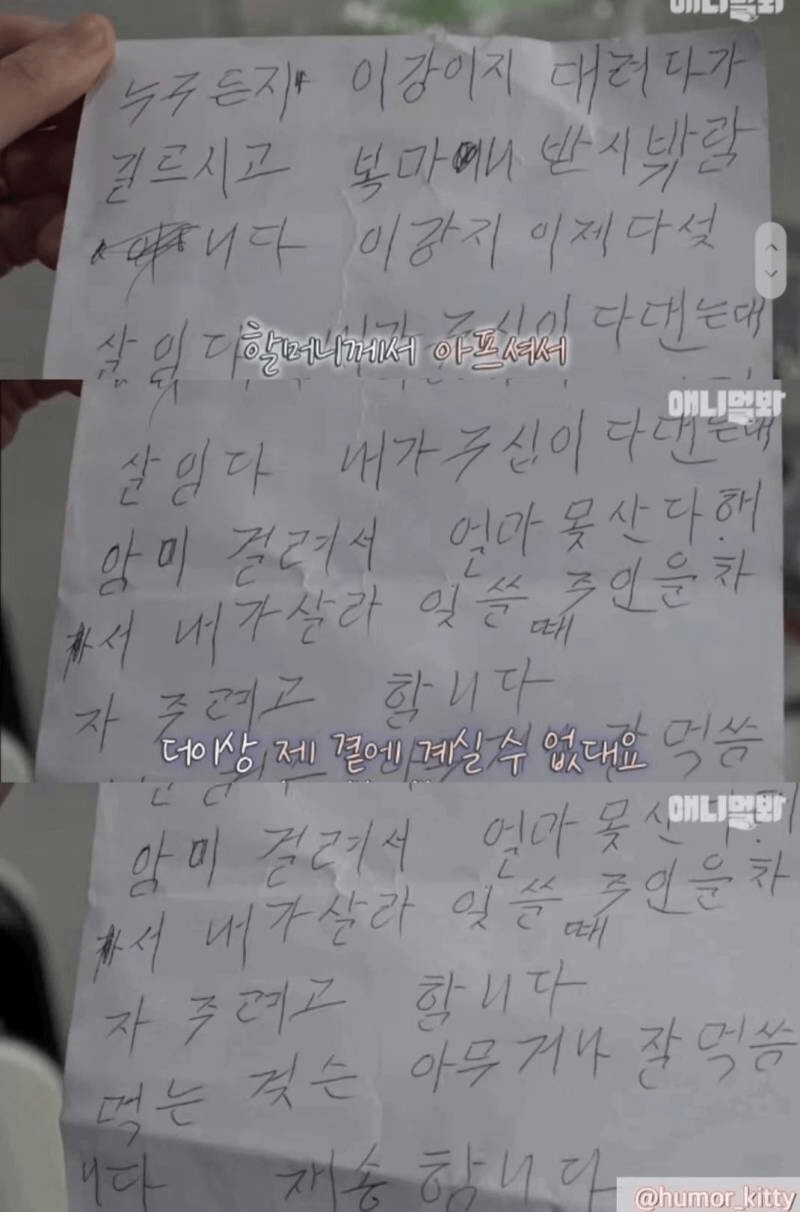 애니멀봐
누구든지 이강이지 대려다가
길르시고 복마애니 반시밖람
니다 이강지 이제다섯
살임다 내가주십이다댄는대
할머니께서 아프셔서
애니멀봐
살임다 내가주십이다댄는대
암미 걸려서 얼마못산다해
서 내가살라 잊쓸때 주인을차
자 주려고 할니다
잘먹씀
더이상 제 곁에 계실 수 없대요
애니멀봐
암미 걸려서 얼마못산
서 내가살라 잊쓸때 주인을차
자 주려고 할니다
먹는 것슨 아무거나 잘먹씀
니다 재송함니다
@humor_kitty